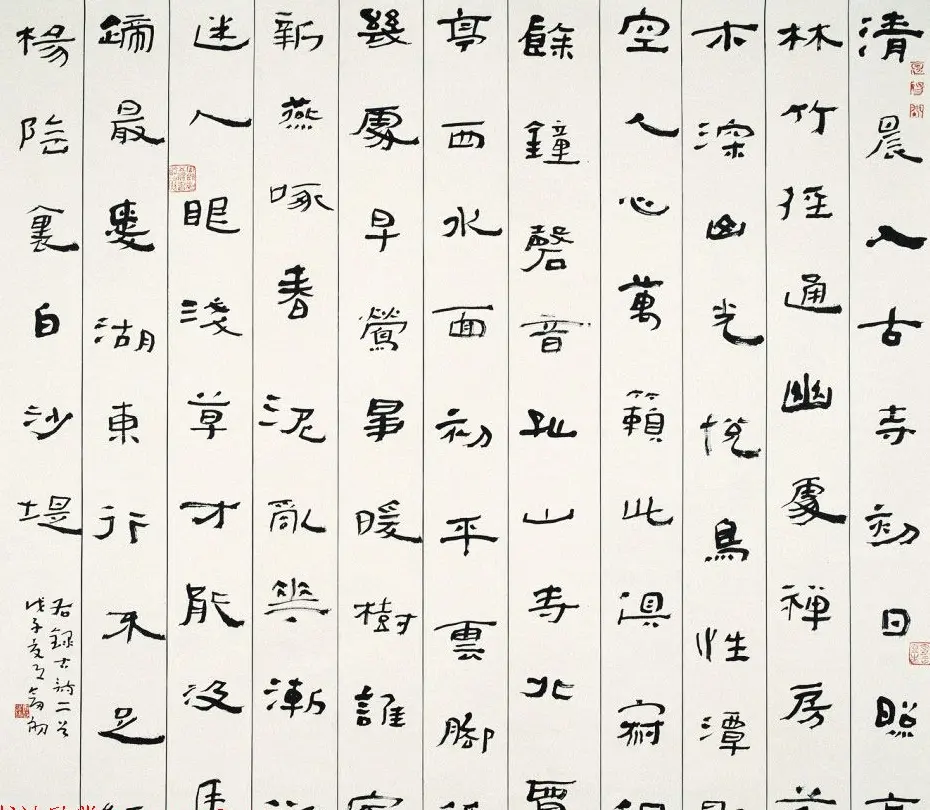 清晨入古寺初日照高
林竹徑通幽處禪房
木深山光悅鳥性潭
空人心萬籟此俱寂
餘鐘磬音孤山寺北賈
亭西水面初平雲腳
幾處早鶯爭暖樹誰家
新燕啄春泥亂華漸
迷人眼淺草才能沒馬
蹄最愛湖東行不足
楊陰裏白沙堤
右錄古詩二首
戊子夏月